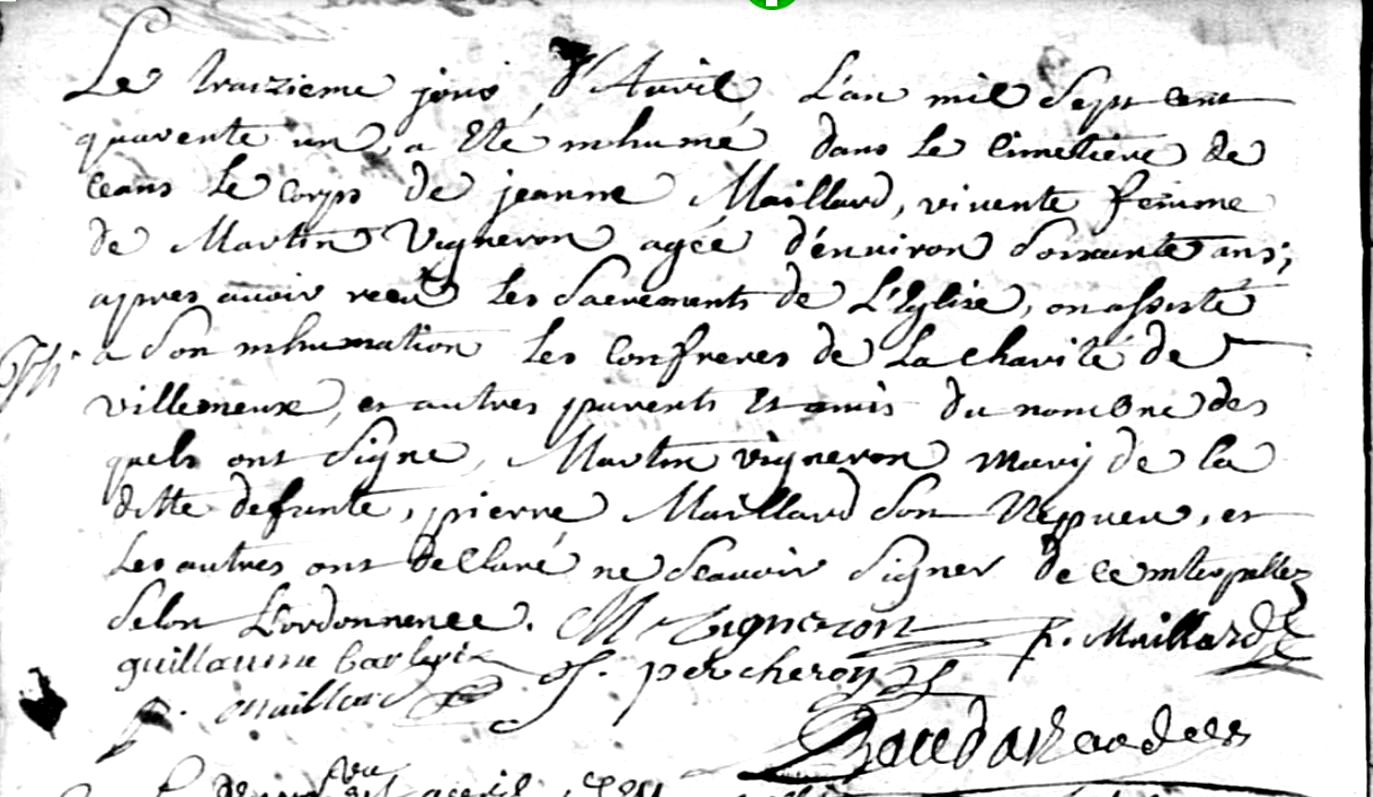 Le traizieme jour d'Avril L'an mil Sept cent
quarente un, a Eté inhumé dans Le Cimetiere de
ceans Le corps de jeanne Maillard, vivente femme
de Martin Vigneron agée d'environ Soixante ans;
apres avoir receu Les Sacrements de L'Eglise, on assisté
a Son inhumation Les Confreres de La charité de
villemeux, et autres parents Et amis du nombre des
quels ont Signe, Martin vigneron mary de la
ditte defunte, pierre Maillard Son Nepveu, et
Les autres ont declaré ne Scavoir Signer de ce interpellez
Selon L'ordonnence. M Vigneron P. Maillard
guillaume J. percheron
P. Maillard
avril